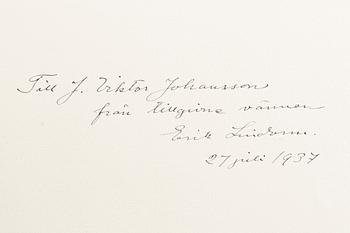 Till J. Viktor Johansson
från tillgivne vännen
Erik Lindorm.
27 juli 1937